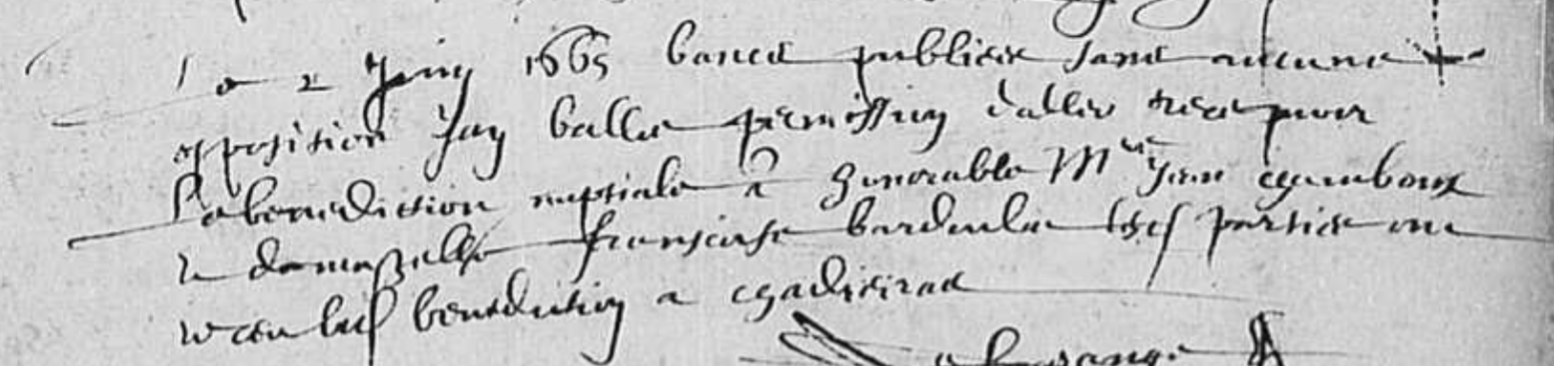 Le 2 Juin 1665 bancs publiés sans aucune
opposition Jay baillé permission daller recepvoir
la benediction nuptiale a honorable Mre Jean
et damoiselle françoise lesd parties ont
receu lad benediction a